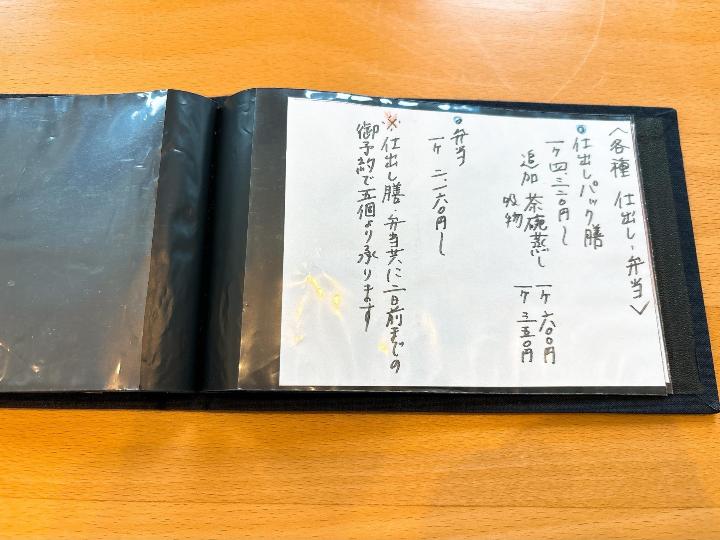 〈各種 仕出し・弁当〉
仕出しパック膳
一ケ 四.三二〇円〜
追加 茶碗蒸し 一ケ 六〇〇円
吸物 一ケ 三五〇円
弁当
一ケ 二.一六〇円〜
※仕出し膳・弁当共に二日前までの
御予約で五個より承ります